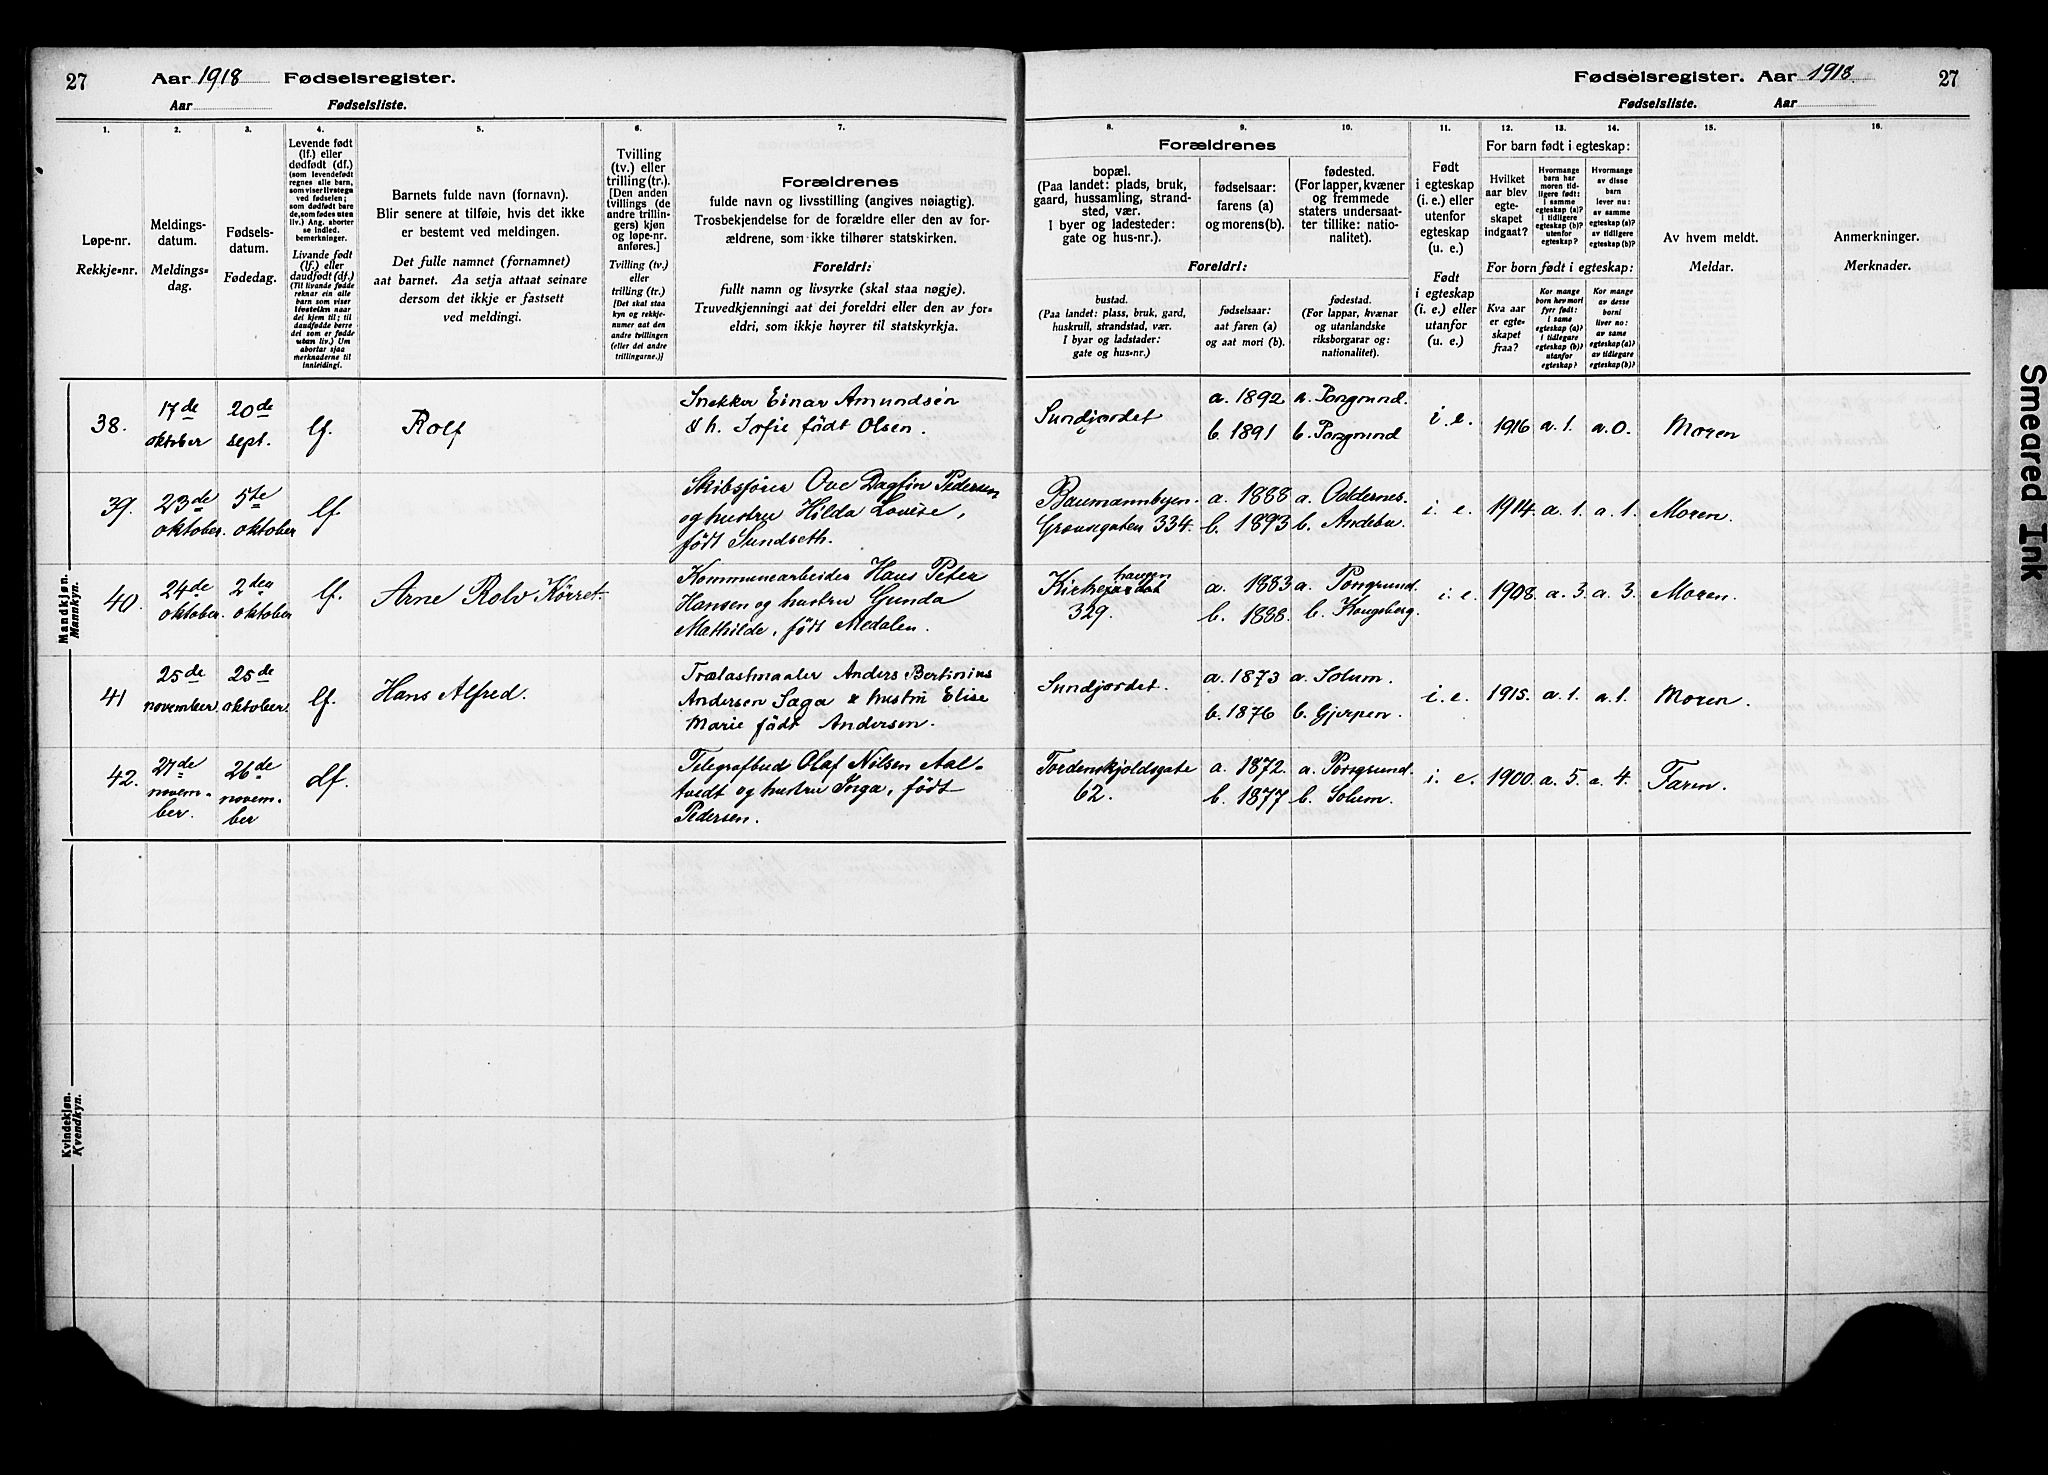 27 Aar 1918 Fødselsregister.
Aar Fødselsliste.
Fødselsregister. Aar 1918. 27
Fødselsliste. Aar
1. 2. 3. 4. 5. 6. 7.
Løpe-nr.
Rekkje-nr.
Meldings-
datum.
Meldings-
dag.
Fødsels-
datum.
Fødedag.
Levende født
(lf.) eller
dødfødt (df.)
(som levendefødt
regnes alle barn,
som viser livstegn
ved fødselen;
som dødfødt bare
de, som fødes uten
liv.) Ang. aborter
se indled.
bemerkninger.
Livande født
(lf.) eller
daudfødt (df.)
(Til livande fødde
reknar ein alle
barn som viser
livsteikn naar
dei kjem til; til
daudfødde berre
dei som er fødde
utan liv.) Um
abortar sjaa
merknaderne til
innleiding!.
Barnets fulde navn (fornavn).
Blir senere at tilføie, hvis det ikke
er bestemt ved meldingen.
Det fulle namnet (fornamnet)
aat barnet. Aa setja attaat seinare
dersom det ikkje er fastsett
ved meldingi.
Tvilling
(tv.) eller
trilling (tr.).
[Den anden
tvillings (de
andre trillin-
gers) kjøn
og løpe-nr.
anføres.]
Tvilling (tv.)
eller
trilling (tr.)
[Det skal staa
kyn og rekkje-
numer aat den
andre tvillingen
(eller dei andre
trillingarne.)]
Forældrenes
fulde navn og livsstilling (angives nøiagtig).
Trosbekjendelse for de forældre eller den av for-
ældrene, som ikke tilhører statskirken.
Foreldri:
fullt namn og livsyrke (skal staa nøgje).
Truvedkjenningi aat dei foreldri eller den av for-
eldri, som ikkje høyrer til statskyrkja.
8. 9. 10. 11. 12. 13. 14. 15. 16.
Forældrenes
bopæl.
(Paa landet: plads, bruk,
gaard, hussamling, strand-
sted, vær.
I byer og ladesteder:
gate og hus-nr.).
fødselsaar:
farens (a)
og morens (b).
fødested.
(For lapper, kvæner
og fremmede
staters undersaat-
ter tillike: natio-
nalitet).
Foreldri:
bustad.
(Paa landet: plass, bruk, gard,
huskrull, strandstad, vær.
I byar og ladstader:
gate og hus-nr.)
fødselsaar:
aat faren (a)
og aat mori (b).
fødestad.
(For lappar, kvænar
og utanlandske
riksborgarar og:
nationalitet).
Født
i egteskap
(i. e.) eller
utenfor
egteskap
(u. e.)
Født
i egteskap
(i. e.) eller
utanfor
(u. e.)
For barn født i egteskap:
Hvilket
aar blev
egte-
skapet
indgaat?
Hvormange
barn har
moren tid-
ligere født:
i samme
egteskap (a)?
i tidligere
egteskap (b)?
utenfor
egteskap?
Hvormange
av disse
barn
lever nu:
av samme
egteskap (a)?
av tidligere
egteskap (b)?
For born født i egteskap:
Kva aar
er egte-
skapet
fraa?
Kor mange
born hev mori
fyrr født:
i same
egteskap (a)?
i tidlegare
egteskap (b)?
utanfor
egteskap?
Kor mange
av desse
borni
liver no:
av same
egteskap (a)?
av tidlegare
egteskap (b)?
Av hvem meldt.
Meldar.
Anmerkninger.
Merknader.
Mandkjøn.
Mannkyn.
38. 17de oktober 20de sept. lf. Rolf
Snekker Einar Amundsen
& h. Sofie født Olsen.
Sundjordet a. 1892 a. Porsgrund.
b. 1891 b. Porsgrund
i. e. 1916 a. 1. a. 0. Moren
39. 23de oktober. 5te oktober lf.
Skibsfører Ove Dagfin Pedersen
og hustru Hilda Lovise,
født Sundseth.
Baumannbyen.
Gravagaten 334.
a. 1888 a.
b. 1893 b. Andebu.
i. e. 1914. a. 1. a. 1. Moren.
40. 24de oktober. 2den oktober lf. Arne Rolv Kørret.
Kommunearbeider Hans Peter
Hansen og hustru Gunda
Mathilde, født Medalen.
Kirkehaugen
329.
a. 1883 a. Porsgrund.
b. 1888. b. Kongsberg.
i. e. 1908. a. 3. a. 3. Moren.
41 25de november. 25de oktober. lf. Hans Alfred.
Trælastmaaler Anders Bertinius
Andersen Saga & hustru Elise
Marie født Andersen.
Sundjordet. a. 1873 a. Solum.
b. 1876 b. Gjerpen.
i. e. 1915. a. 1. a. 1. Moren.
42. 27de novem-
ber. 26de novem-
ber df.
Telegrafbud Olaf Nilsen Aal-
tvedt og hustru Inga, født
Pedersen.
Tordenskjoldsgate
62.
a. 1872. a. Porsgrund.
b. 1877 b. Solum.
i. e. 1900. a. 5. a. 4. Faren.
Kvindekjøn.
Kvendkyn.
Smeared Ink